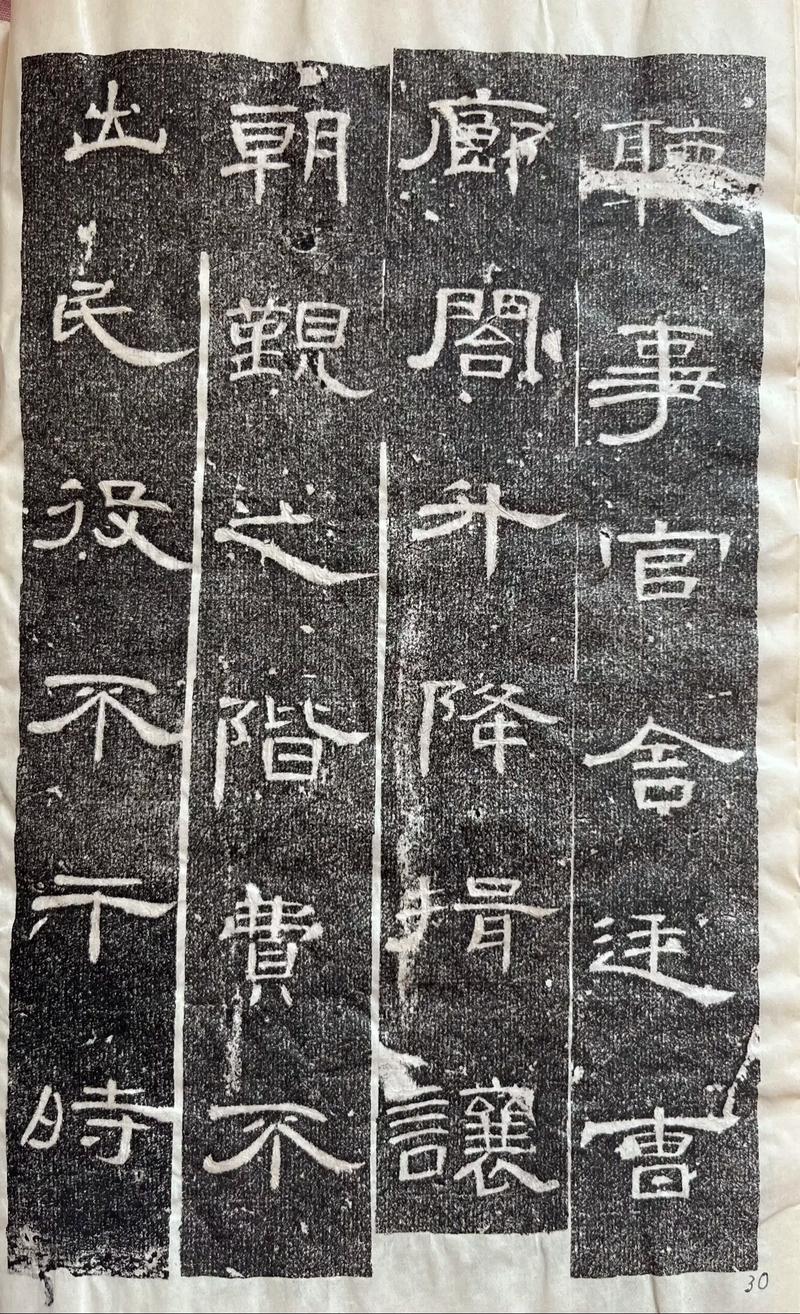 聴事官舍廷曹
廊閣升降揖讓
朝覲之階費不
出民役不干時
30